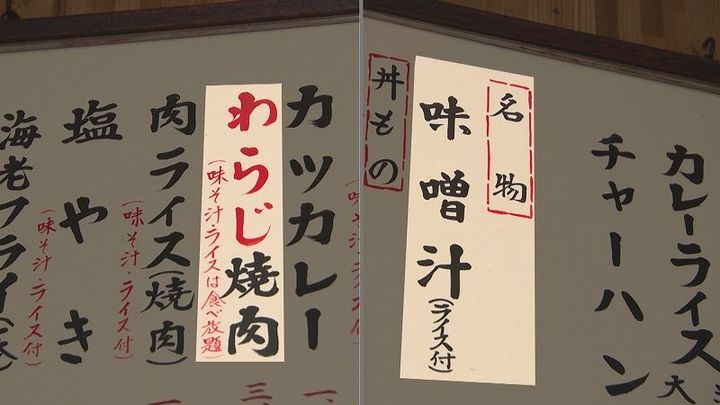 カツカレー
わらじ焼肉
(味そ汁・ライスは食べ放題)
肉ライス(焼肉)
(味そ汁・ライス付)
塩やき
(味そ汁・ライス付)
海老フライ(
一、
三、
一、
カレーライス
大
チャーハン
名物
味噌汁(ライス付)
丼もの